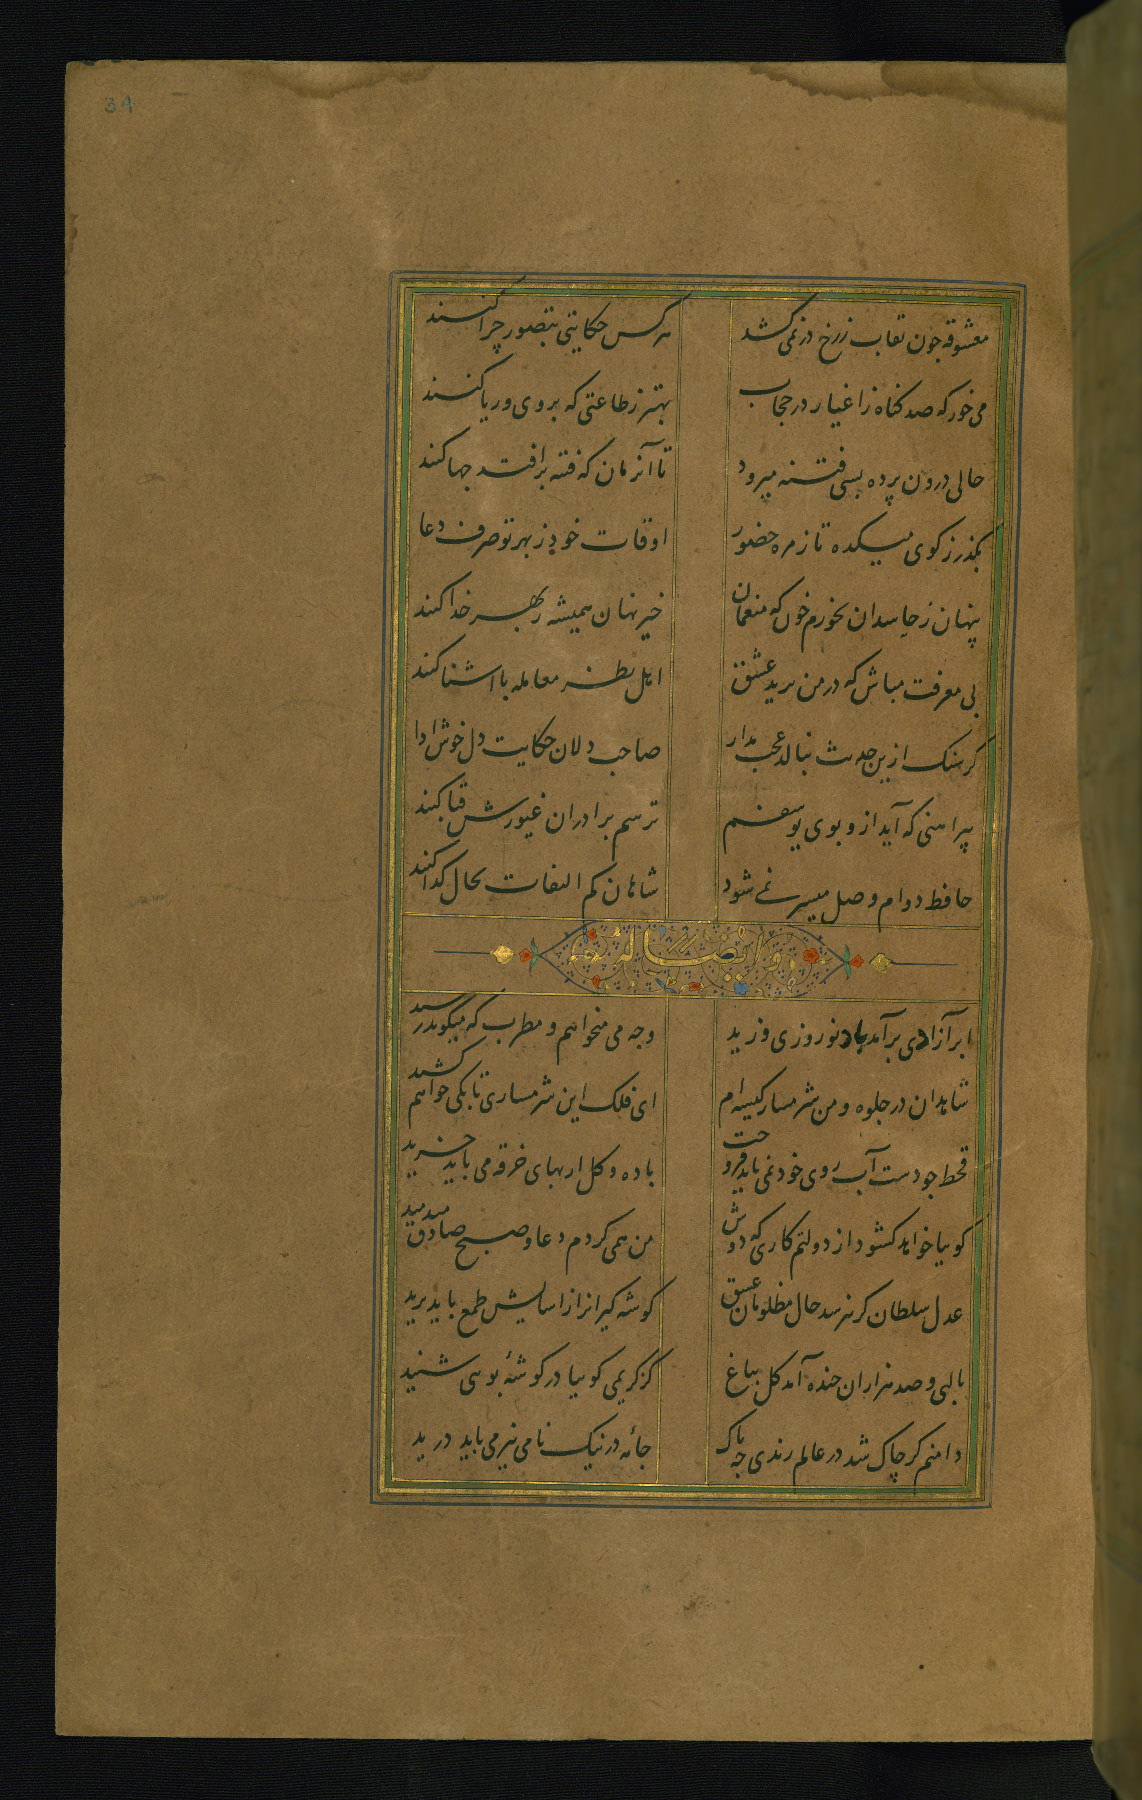 34
معشوقه چون نقاب ز رخ در نمی کشد هر کس حکایتی بتصور چرا کنند
می خور که صد کناه ز اغیار در حجاب بهتر ز طاعتی که بروی و ریا کنند
حالی درون پرده بسی فتنه میرود تا آنزمان که فتنه برافتد جها کنند
بکذر ز کوی میکده تا زمره حضور اوقات خود ز بهر تو صرف دعا
پنهان ز حاسدان بخورم خون که منعمان خیر نهان همیشه ز بهر خدا کنند
بی معرفت مباش که در من یرید عشق اهل نظر معامله با اشنا کنند
کر سنک ازین حدیث بنالد عجب مدار صاحب دلان حکایت دل خوش ادا
پیراهنی که آید ازو بوی یوسفم ترسم برادران غیورش قبا کنند
حافظ دوام وصل میسر نمی شود شاهان کم التفات بحال کدا کنند
و ایضا له
ابر آزادی برآمد باد نوروزی وزید وجه می میخواهم و مطرب که میکوید رسید
شاهدان در جلوه و من شرمسار کیسه ام ای فلک این شرمساری تا بکی خواهم کشید
قحط جودست آب روی خود نمی باید فروخت باده و کل از بهای خرقه می باید خرید
کوییا خواهد کشود از دولتم کاری که دوش من همی کردم دعا و صبح صادق میدمید
عدل سلطان کر نپرسد حال مظلومان عشق کوشه کیرانرا ز اسایش طمع باید برید
بالبی و صد هزاران خنده آمد کل بباغ کز کریمی کوییا در کوشهٔ بویی شنید
دامنم کر چاک شد در عالم رندی چه باک جامهٔ در نیک نامی نیز می باید درید